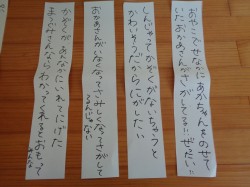 おやこでせなかにあかちゃんをのせて
いた。おかあさんがさがしてる!!ぜったい!!
しんじゃってかぞくがないちゃうと
かわいそうだからにがしたい
おかあさんがいなくなってさみしくなってさがして
てるんじゃない
かぞくがあんなかにいれてにげた
まっつのみさえなら わかってくれるとおもって